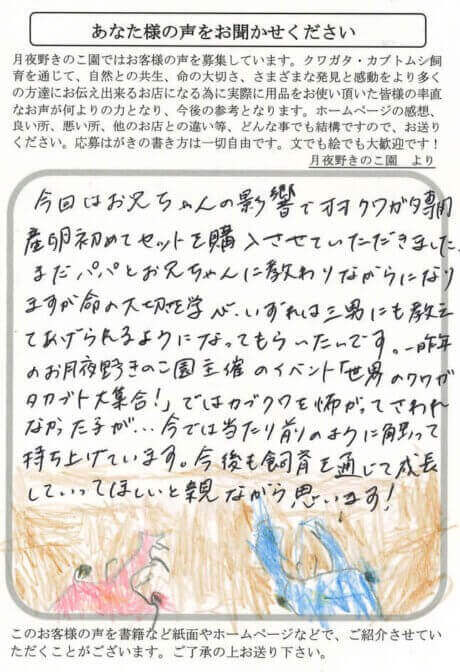 あなた様の声をお聞かせください
月夜野きのこ園ではお客様の声を募集しています。クワガタ・カブトムシ飼
育を通じて、自然との共生、命の大切さ、さまざまな発見と感動をより多く
の方達にお伝え出来るお店になる為に実際に用品をお使い頂いた皆様の率直
なお声が何よりの力となり、今後の参考となります。ホームページの感想、
良い所、悪い所、他のお店との違い等、どんな事でも結構ですので、お送り
ください。応募はがきの書き方は一切自由です。文でも絵でも大歓迎です！
月夜野きのこ園 より
今回はお兄ちゃんの影響でオオクワガタ専用
産卵初めてセットを購入させていただきました。
まだパパとお兄ちゃんに教わりながらになり
ますが命の大切を学び、いずれは三男にも教え
てあげられるようになってもらいたいです。一昨年
のお月夜野きのこ園主催のイベント「世界のクワガ
タカブト大集合！」ではカブクワを怖がってさわれ
なかった子が…今では当たり前のように触って
持ち上げています。今後も飼育を通じて成長
していってほしいと親ながら思います！
このお客様の声を書籍など紙面やホームページなどで、ご紹介させてい
ただくことがございます。ご了承の上お送り下さい。